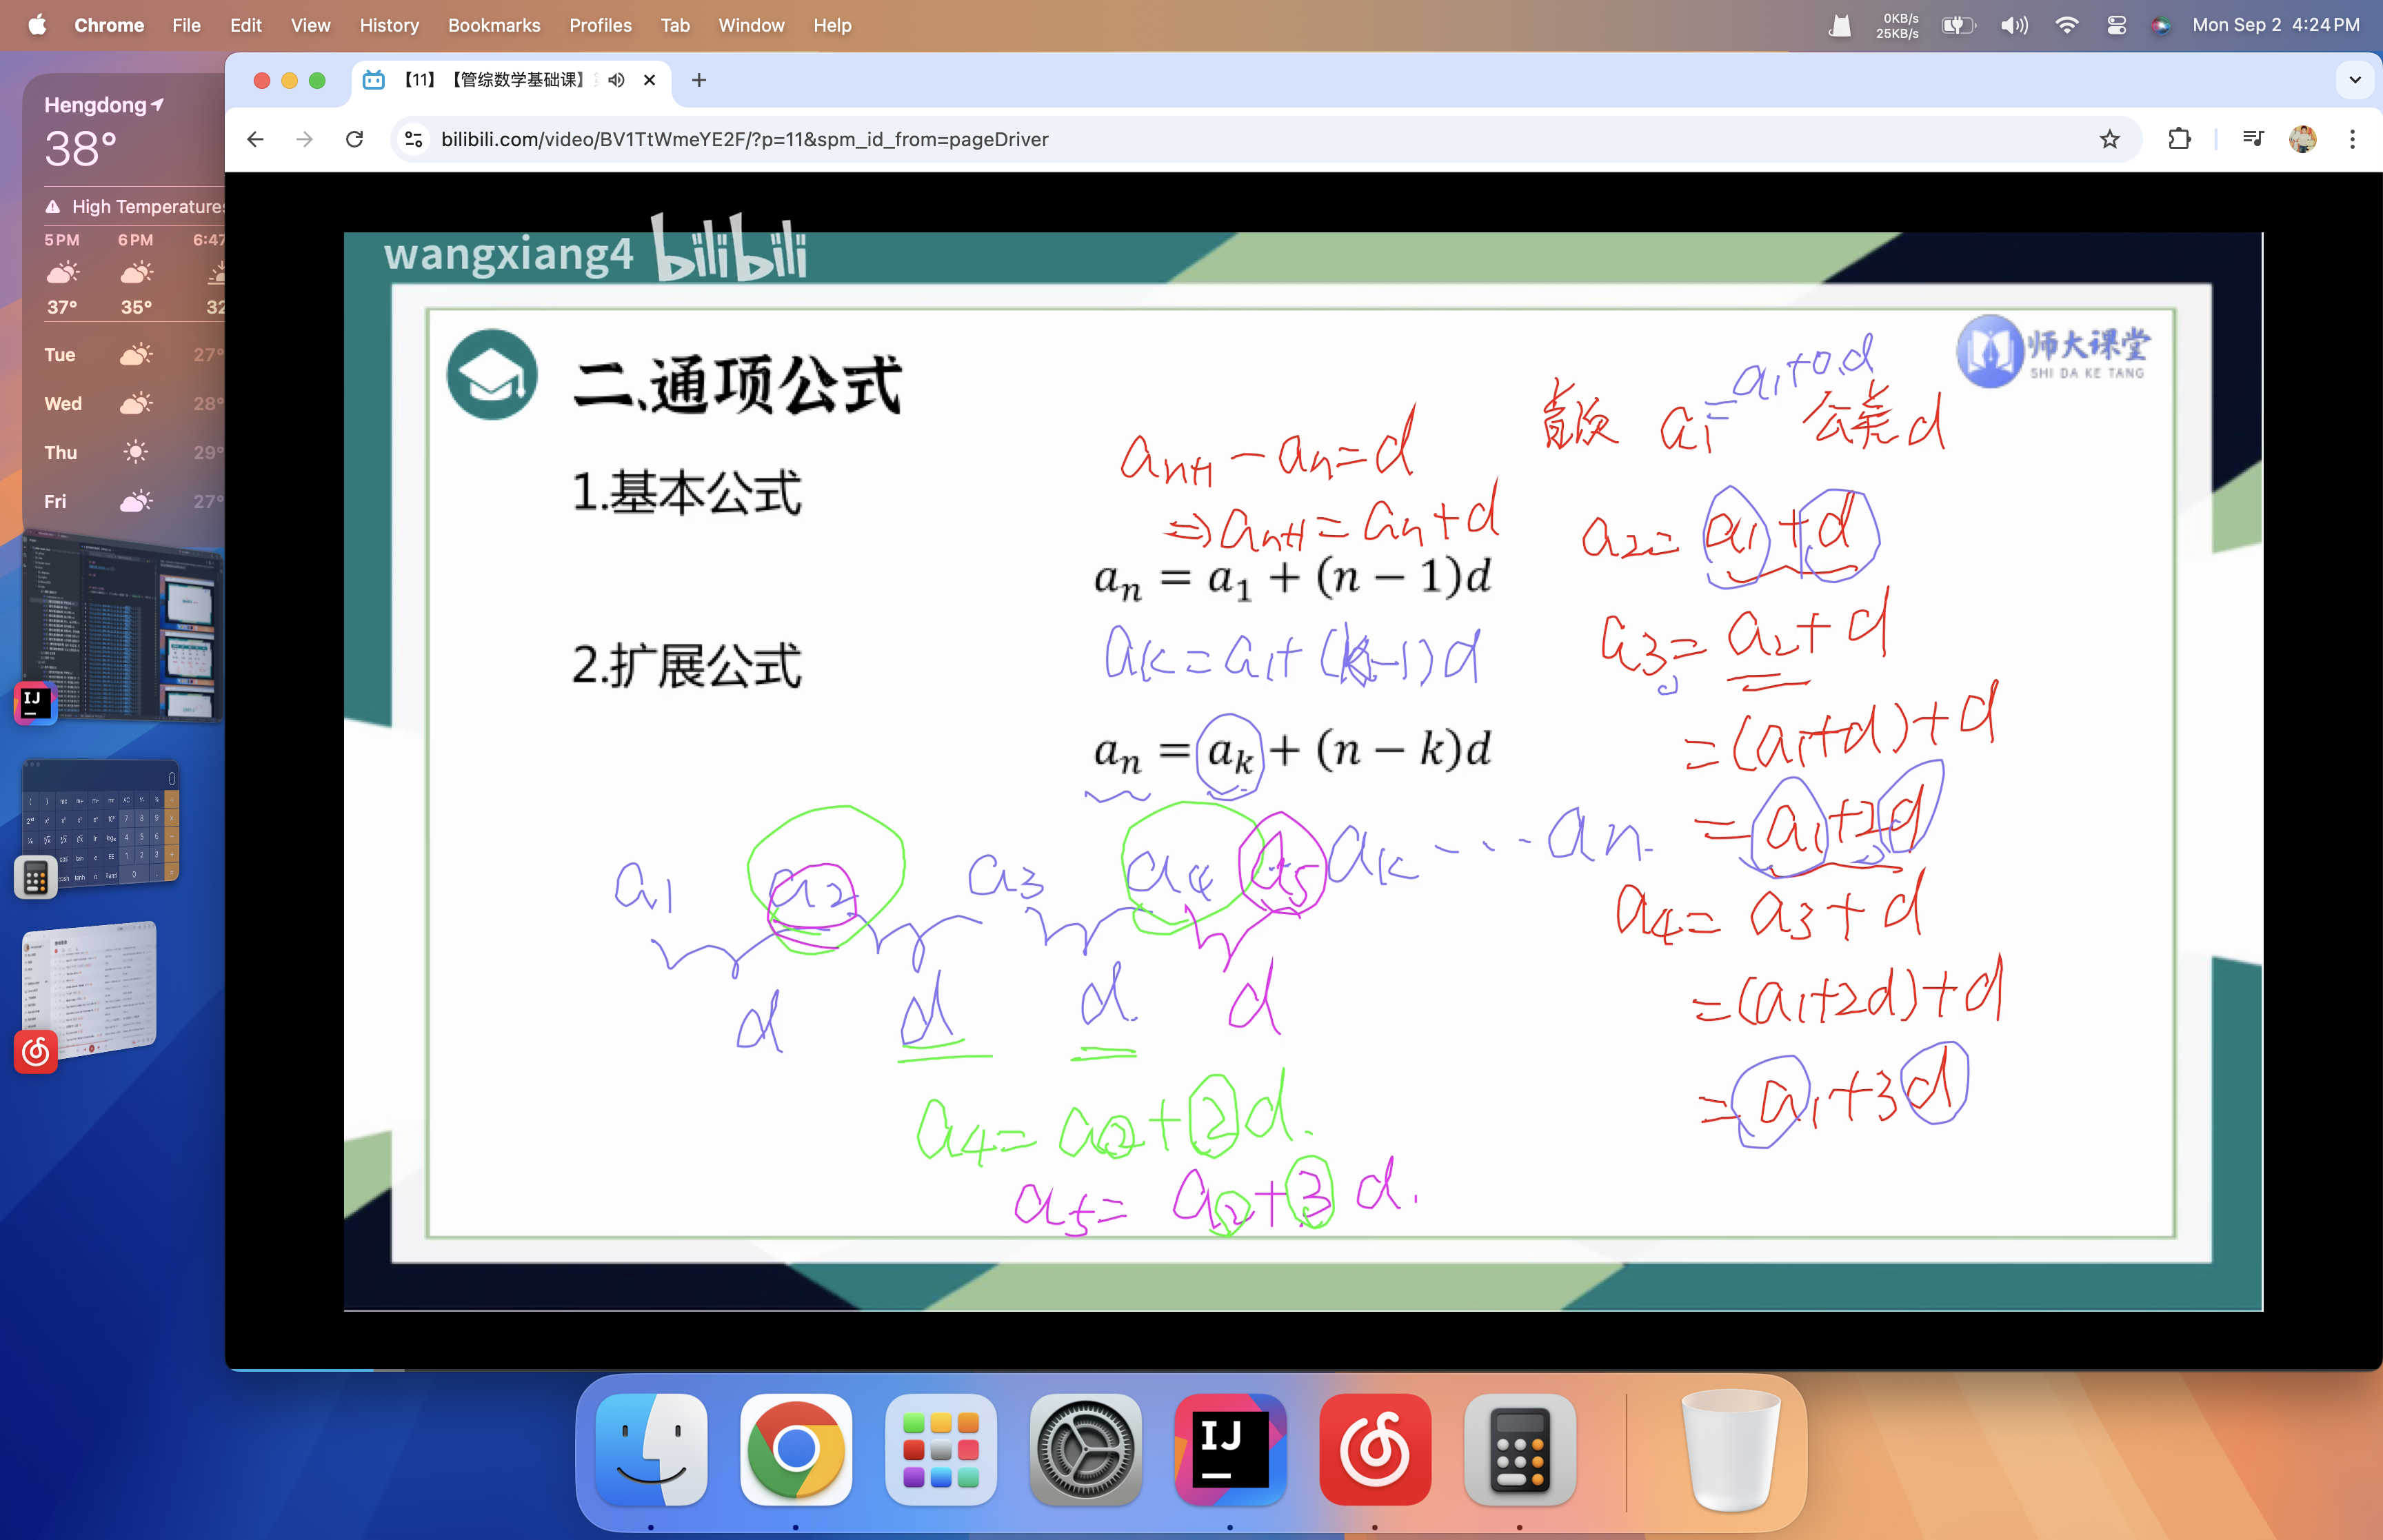 Chrome File Edit View History Bookmarks Profiles Tab Window Help
0KB/s
25KB/s
Mon Sep 2 4:24 PM
Hengdong
38°
High Temperatures
5 PM 6 PM 6:47
37° 35° 32
Tue 27°
Wed 28°
Thu 29°
Fri 27°
【11】【管综数学基础课】
bilibili.com/video/BV1TtWmeYE2F/?p=11&spm_id_from=pageDriver
wangxiang4 bilibili
师大课堂
SHI DA KE TANG
二.通项公式
1.基本公式
aₙ₊₁ - aₙ = d
⇒ aₙ₊₁ = aₙ + d
aₙ = a₁ + (n − 1)d
aₖ = a₁ + (k-1)d
2.扩展公式
aₙ = aₖ + (n − k)d
a₁ a₂ a₃ a₄ a₅ aₖ ··· aₙ
d d d d
a₄ = a₂ + 2d.
a₅ = a₂ + 3d.
首项 a₁ = a₁+0.d 公差 d
a₂ = a₁ + d
a₃ = a₂ + d
= (a₁+d) + d
= a₁+2d
a₄ = a₃ + d
= (a₁+2d) + d
= a₁+3d
IJ
IJ